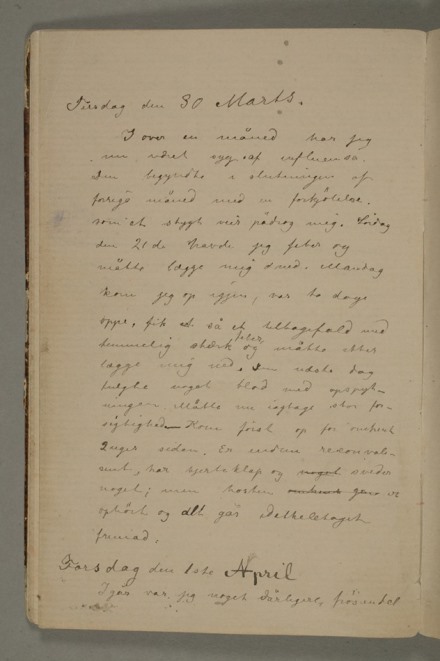 Tirsdag den 30 Marts.
I over en måned har jeg
nu været syg af influensa.
Den begyndte i slutningen af
forrige måned med en forkjølelse,
som et stygt veir pådrog mig. Lördag
den 21de havde jeg feber og
måtte lægge mig ned. Mandag
kom jeg op igjen, var to dage
oppe, fik så et tilbagefald med
temmelig stærk feber og måtte atter
lægge mig ned. den næste dag
fulgte noget blod med opspyt-
ningen. Måtte nu iagtage stor for-
sigtighed. Kom først op for omtrent
2 uger siden. Er endnu rekonval-
sent, har hjerteklap og noget sveder
noget; men hosten er
ophört og alt går
fremad.
Torsdag den 1ste April
Igår var jeg noget dårligere,